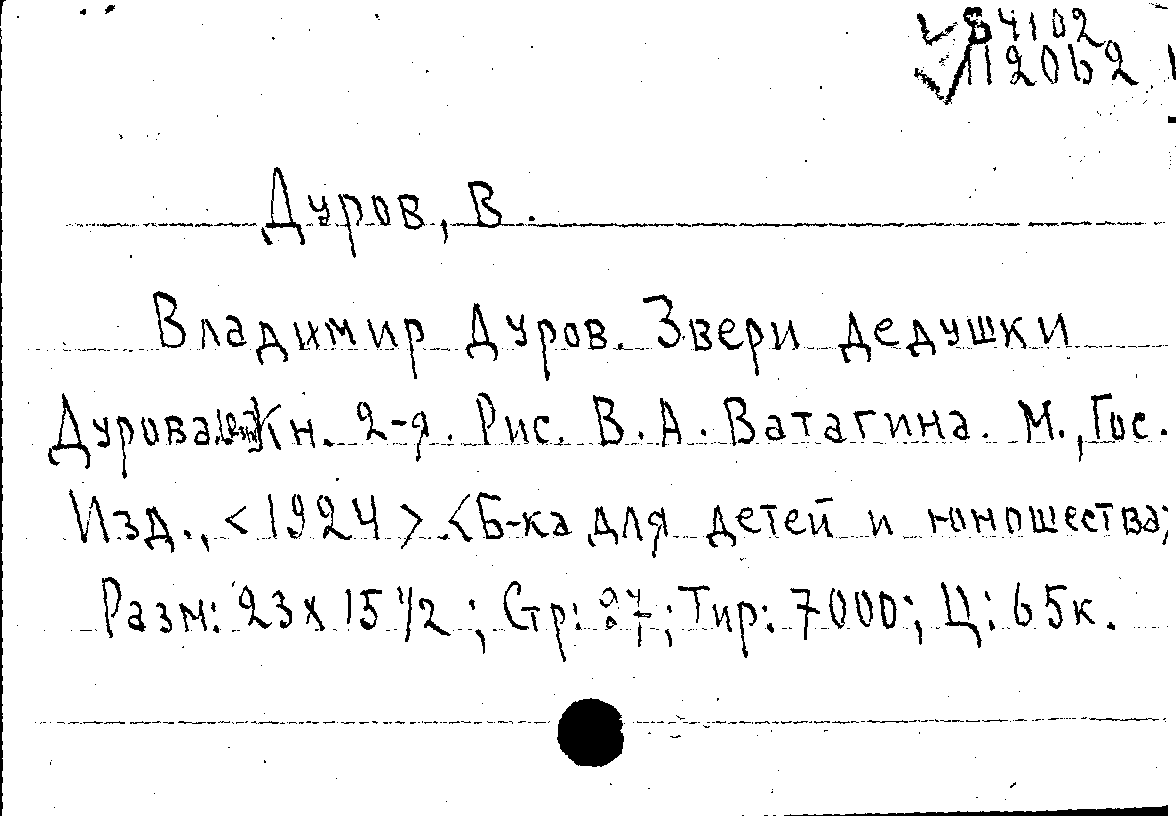 84102
112062
Дуров, В.
Владимир Дуров. Звери дедушки
Дурова. Кн. 2-я. Рис. В. А. Ватагина. М., Гос.
Изд., <1924> <Б-ка для детей и юношества;
Разм: 23 х 15 1/2; Стр: 87; Тир: 7000; Ц: 65к.